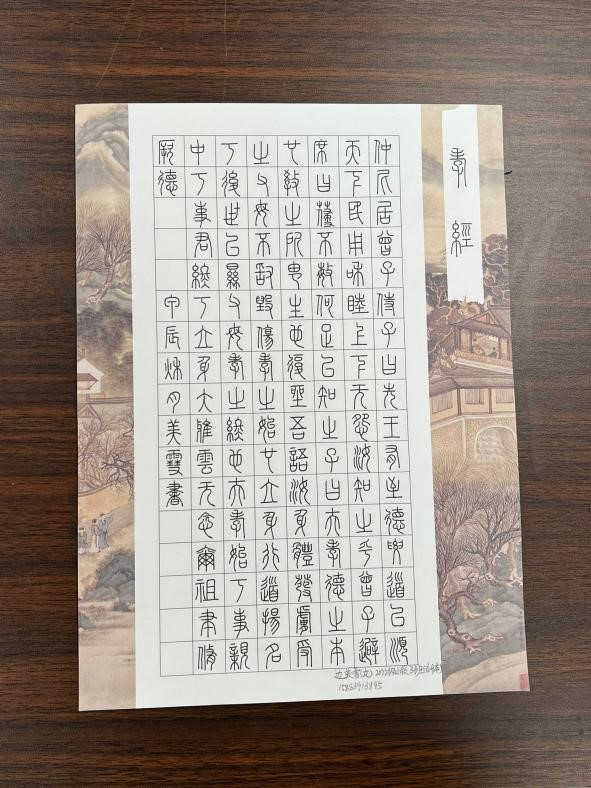 孝經
仲尼居曾子侍子曰先王有至德要道以順
天下民用和睦上下无怨汝知之乎曾子避
席曰參不敏何足以知之子曰夫孝德之本
也教之所由生也復坐吾語汝身體髮膚受
之父母不敢毀傷孝之始也立身行道揚名
於後世以顯父母孝之終也夫孝始於事親
中於事君終於立身大雅雲无念爾祖聿脩
厥德
甲辰秋月美雪書
美雪(女)
15863913845